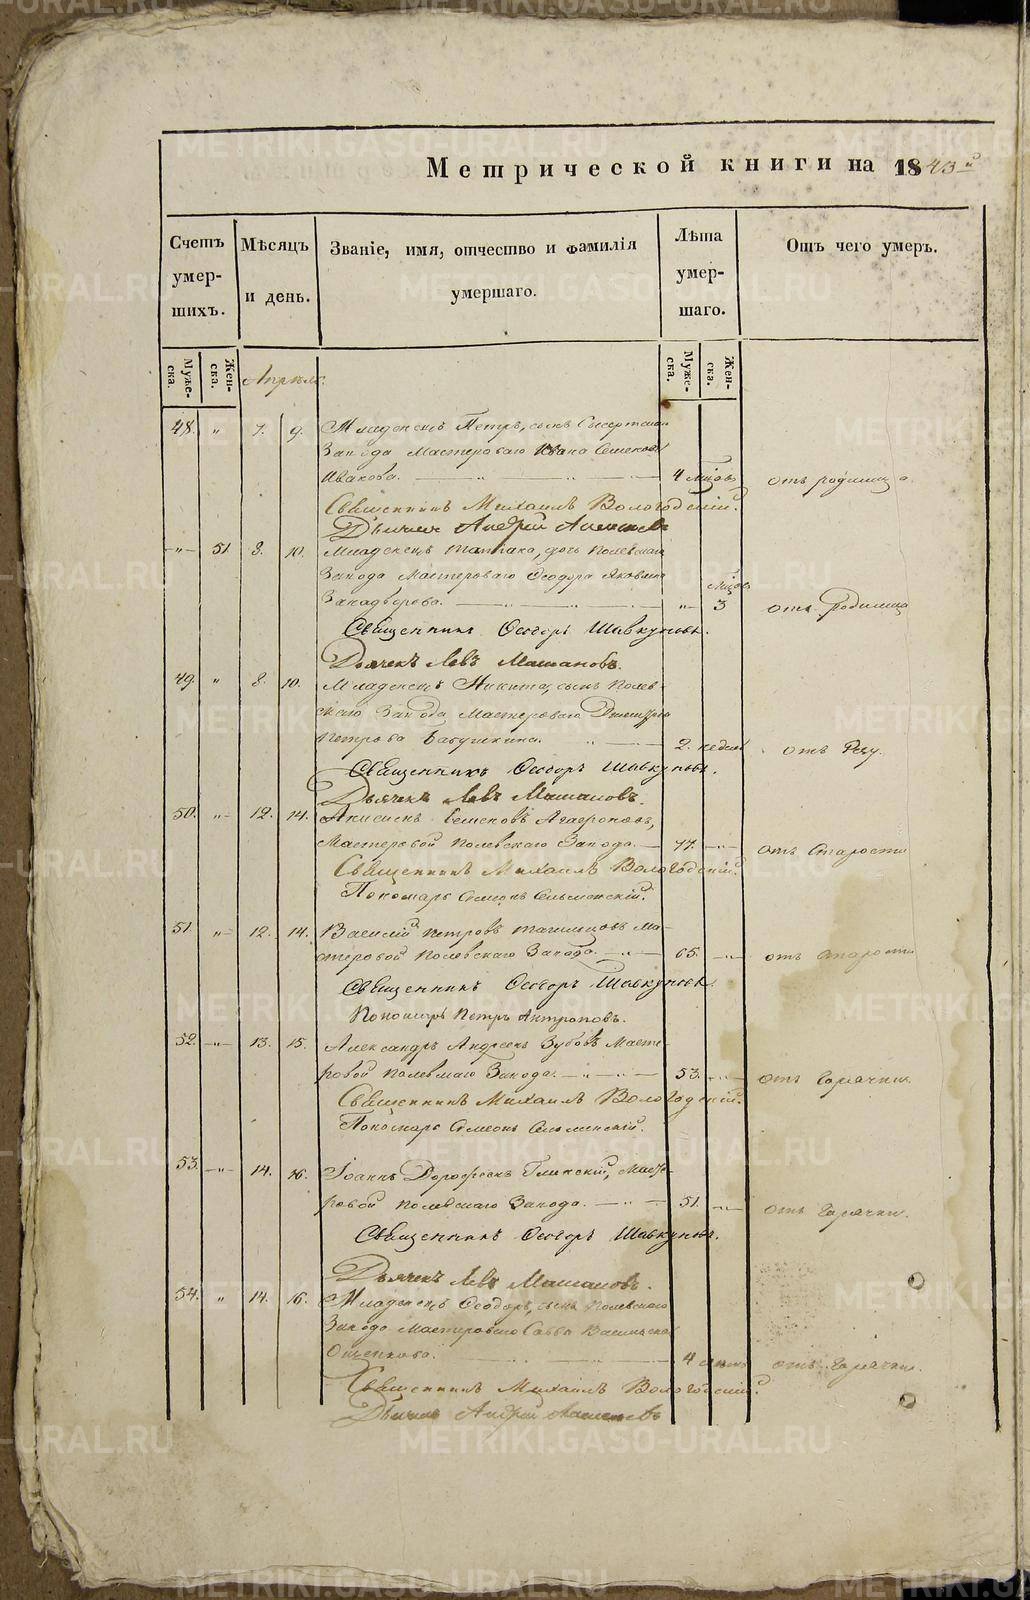 Метрической книги на 1843й
Счетъ умершихъ.
Мѣсяцъ и день.
Званіе, имя, отчество и фамилія умершаго.
Лѣта умершаго.
Отъ чего умеръ.
Мужеска.
Женска.
Мужеска.
Женска.
Апрѣль.
48. " 7. 9. Младенецъ Петръ, сынъ Сысертскаго
Завода Мастероваго Ивана Семенова
4 мѣсяц. отъ родимца.
Священникъ Михаилъ Вологодскій.
Дьячекъ Андрей
" 51 8. 10. Младенецъ Татіана, дочь Полевскаго
Завода Мастероваго Ѳеодора Яковлева
Западверова. " 3 мѣсяц. отъ Родимца
Священникъ Ѳеодоръ Шавкуновъ.
Дьячекъ Левъ Машановъ.
49. " 8. 10. Младенецъ Никита, сынъ Полев-
скаго Завода Мастероваго Димитрія
Петрова Бабушкина. 2. недѣль отъ
Священникъ Ѳеодоръ Шавкуновъ.
Дьячекъ Левъ Машановъ.
50. " 12. 14. Анисимъ Семеновъ Агафоновъ,
Мастеровой Полевскаго Завода. 77. отъ Старости
Священникъ Михаилъ Вологодскій.
Пономарь Симеонъ Сельменскій.
51. " 12. 14. Василій Петровъ Тагильцовъ Ма-
стеровой Полевскаго Завода. 65. отъ старости
Священникъ Ѳеодоръ Шавкуновъ
Пономарь Петръ Антроповъ.
52. " 13. 15. Александръ Андреевъ Зубовъ Масте-
ровой Полевскаго Завода. 53. отъ Горячки.
Священникъ Михаилъ Вологодскій.
Пономарь Симеонъ Сельменскій.
53. " 14. 16. Іоаннъ Дорофеевъ Глинскій, Масте-
ровой Полевскаго Завода. 51. отъ Горячки.
Священникъ Ѳеодоръ Шавкуновъ.
Дьячекъ Левъ Машановъ.
54. " 14. 16. Младенецъ Ѳеодоръ, сынъ Полевскаго
Завода Мастероваго Савы Васильева
4 отъ Горячки.
Священникъ Михаилъ Вологодскій.
Дьячекъ Андрей
METRIKI.GASO-URAL.RU